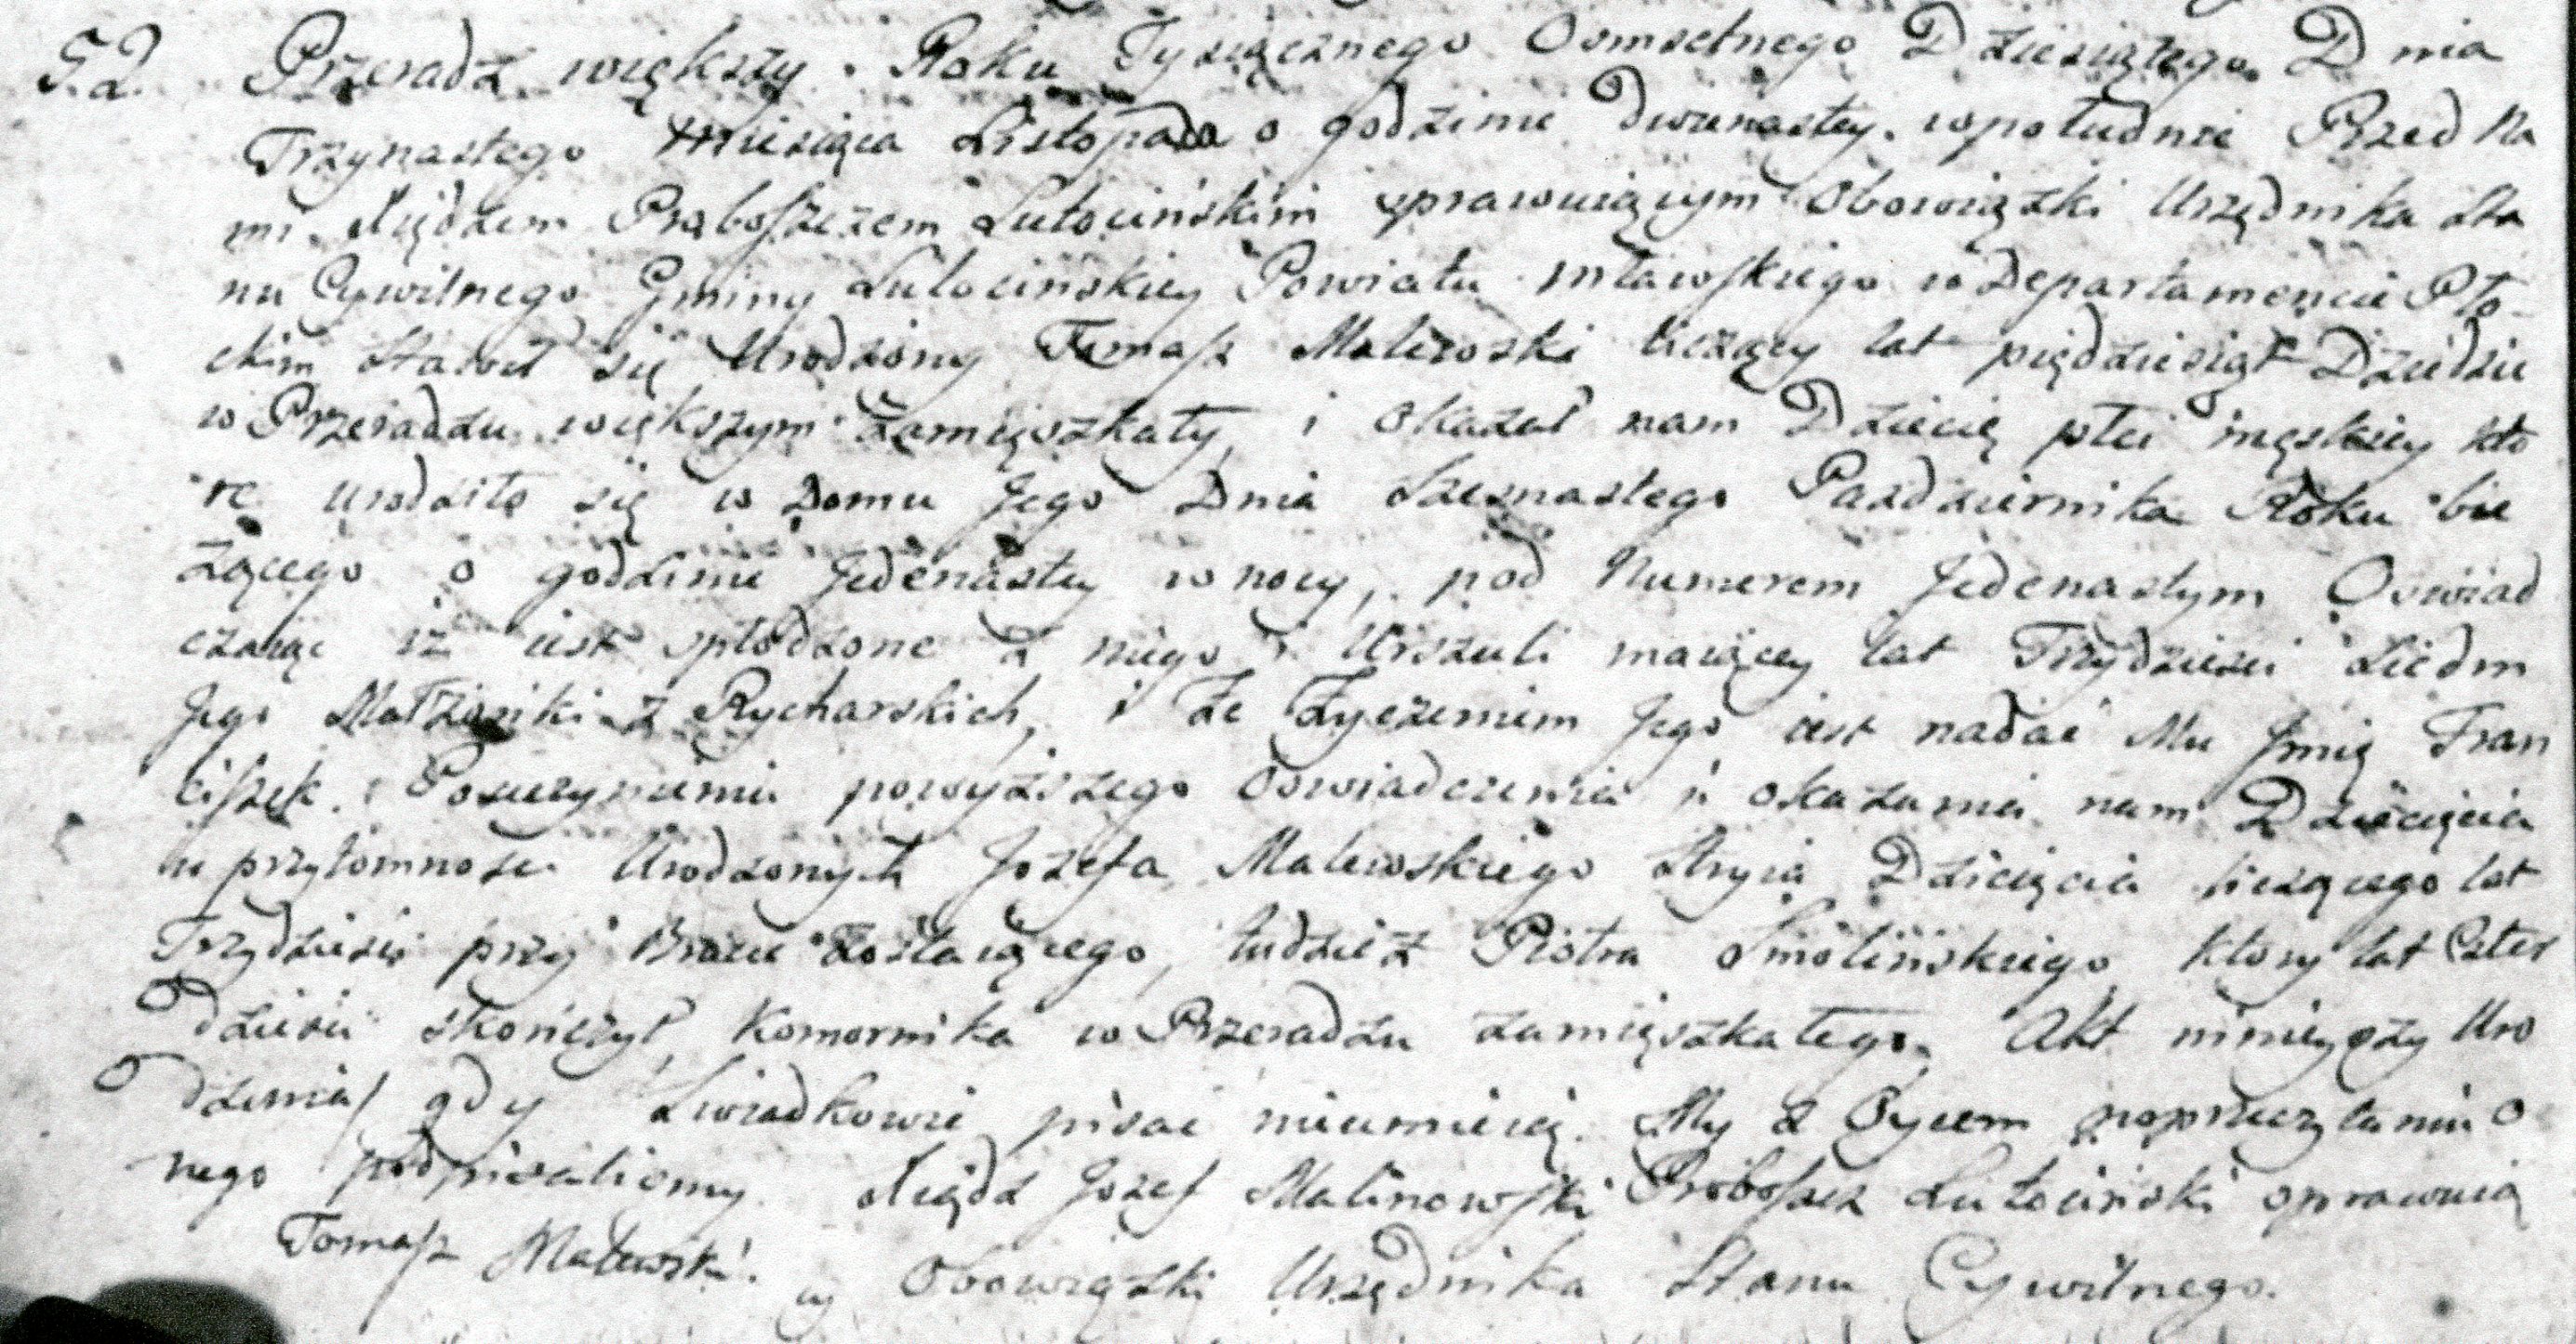 52. Przeradz większy. Roku Tysiącznego Osmsetnego Dziesiątego Dnia
Trzynastego Miesiąca Listopada o godzinie dwunastey w południe Przed Na
mi Xiędzem Proboszczem Lutocińskim sprawuiącym Obowiązki Urzędnika Sta
nu Cywilnego Gminy Lutocińskiey Powiatu Mławskiego w Departamencie Pło
ckim Stawił się Urodzony Tomasz Malewski liczący lat pięćdziesiąt Dziedzic
w Przeradzu większym zamięszkały, i okazał nam Dziecię płci męskiey któ
re urodziło się w Domu Jego Dnia Szesnastego Pazdziernika Roku bie
żącego o godzinie Jedenastey w nocy, pod Numerem Jedenastym Oswiad
czaiąc iż iest spłodzone z niego i Urszuli maiącey lat Trzydzieści siedm
Jego Małżonki z Rycharskich, i że życzeniem Jego iest nadać Mu Imię Fran
ciszek. Po uczynieniu powyższego oswiadczenia i okazania nam Dziecięcia
w przytomnosci Urodzonych Jozefa Malewskiego Stryia Dziecięcia liczącego lat
Trzydzieści przy Bracie zostaiącego, tudzież Piotra Smolińskiego który lat Czter
dzieści skończył Komornika w Przeradzu zamięszkałego. Akt ninieyszy Uro
dzenia gdy Swiadkowie pisać nieumieią. My z Oycem po przeczytaniu o
nego podpisaliśmy. Xiądz Jozef Malinowski Proboszcz Lutociński sprawuią
Tomasz Malewski. cy Obowiązki Urzędnika Stanu Cywilnego.